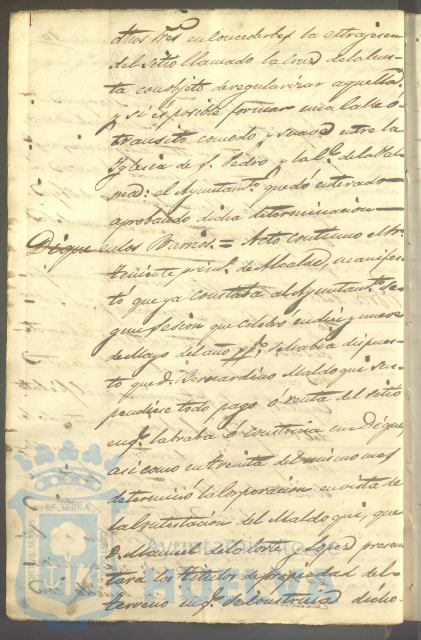 dhos Sres en concederles la extrajesen
del sitio llamado la Cruz de la cues-
ta con objeto de regularizar aquella
y si es posible formar una calle ó
transito comodo y suave entre la
Yglesia de S. Pedro y la Cª de la Pal-
ma: el Ayuntamto quedó enterado
aprobando dicha determinacion
Dique en los Barrios = Acto continuo el Sr
teniente primo de Alcalde, manifes-
tó que ya constaba al Ayuntamto se-
gun sesion que celebró en diez y nueve
de Mayo del año ppº se habia dispues-
to que D. Bernardino Maldoqui sus-
pendiese todo pago ó venta del sitio
en qe labraba ó construia un Dique,
asi como en treinta del mismo mes
determinó la Corporacion en vista de
la Contestacion del Maldoqui, que
D. Manuel de la Corte y Lopez presen
tara los titulos de propiedad del
terreno en qe se construia dicho
Ayuntamiento de
HUELVA